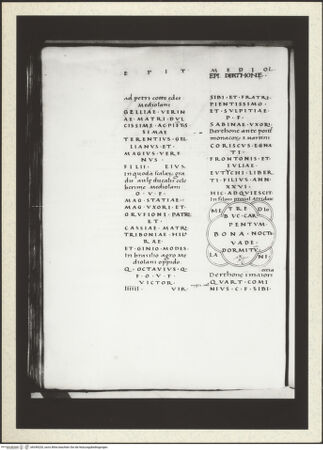 EPIT MEDIOL
EPI DERTHONE
ad petri comedes
Mediolani
GELLIAE·VERIN
AE·MATRI·DVL
CISSIMAE·AC·PIISS
SIMAE
TERENTIVS·GEL
LIANVS·ET·
MAGIVS·VERI
NVS
FILII· EIVS·
In quodã
O·V·F·
MAG·STATIAE·
MAG·VXORI·ET
ORVFIONI·PATRI
ET
CASSIAE·MATRI
TRIBONIAE·HILI
RAE·
ET·GINIO·MODES·
In brasilio agro Me
diolani oppido
Q·OCTAVIVS·Q·
F·O·V·F·
VICTOR·
IIIIII· VIR·
SIBI·ET·FRATRI·
PIENTISSIMO·
ET·SVLPITIAE·
P·F·
SABINAE·VXORI·
Derthone ante port
monacorʒ s. martini
CORISCVS·EGNA
TI·
FRONTONIS·ET
IVLIAE·
EVTICHI·LIBER
TI·FILIVS·ANN·
XXVI·
HIC·ADQVIESCIT·
ME TRE DIO
BVC·CAR
PENTVM·
BONA·NOCTI
VADE·
DORMITV
LA NI
Derthone i maiori
QVART·COMI
NIVS·C·F·SIBI·